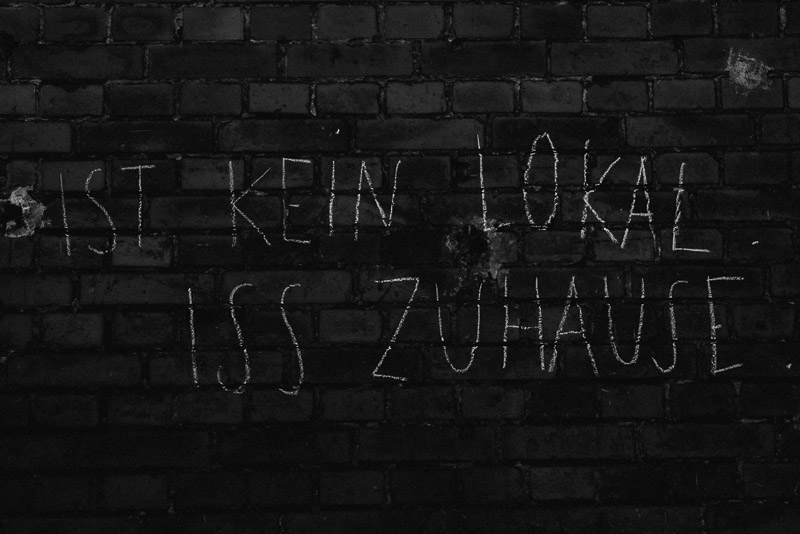 IST KEIN LOKAL
ISS ZUHAUSE